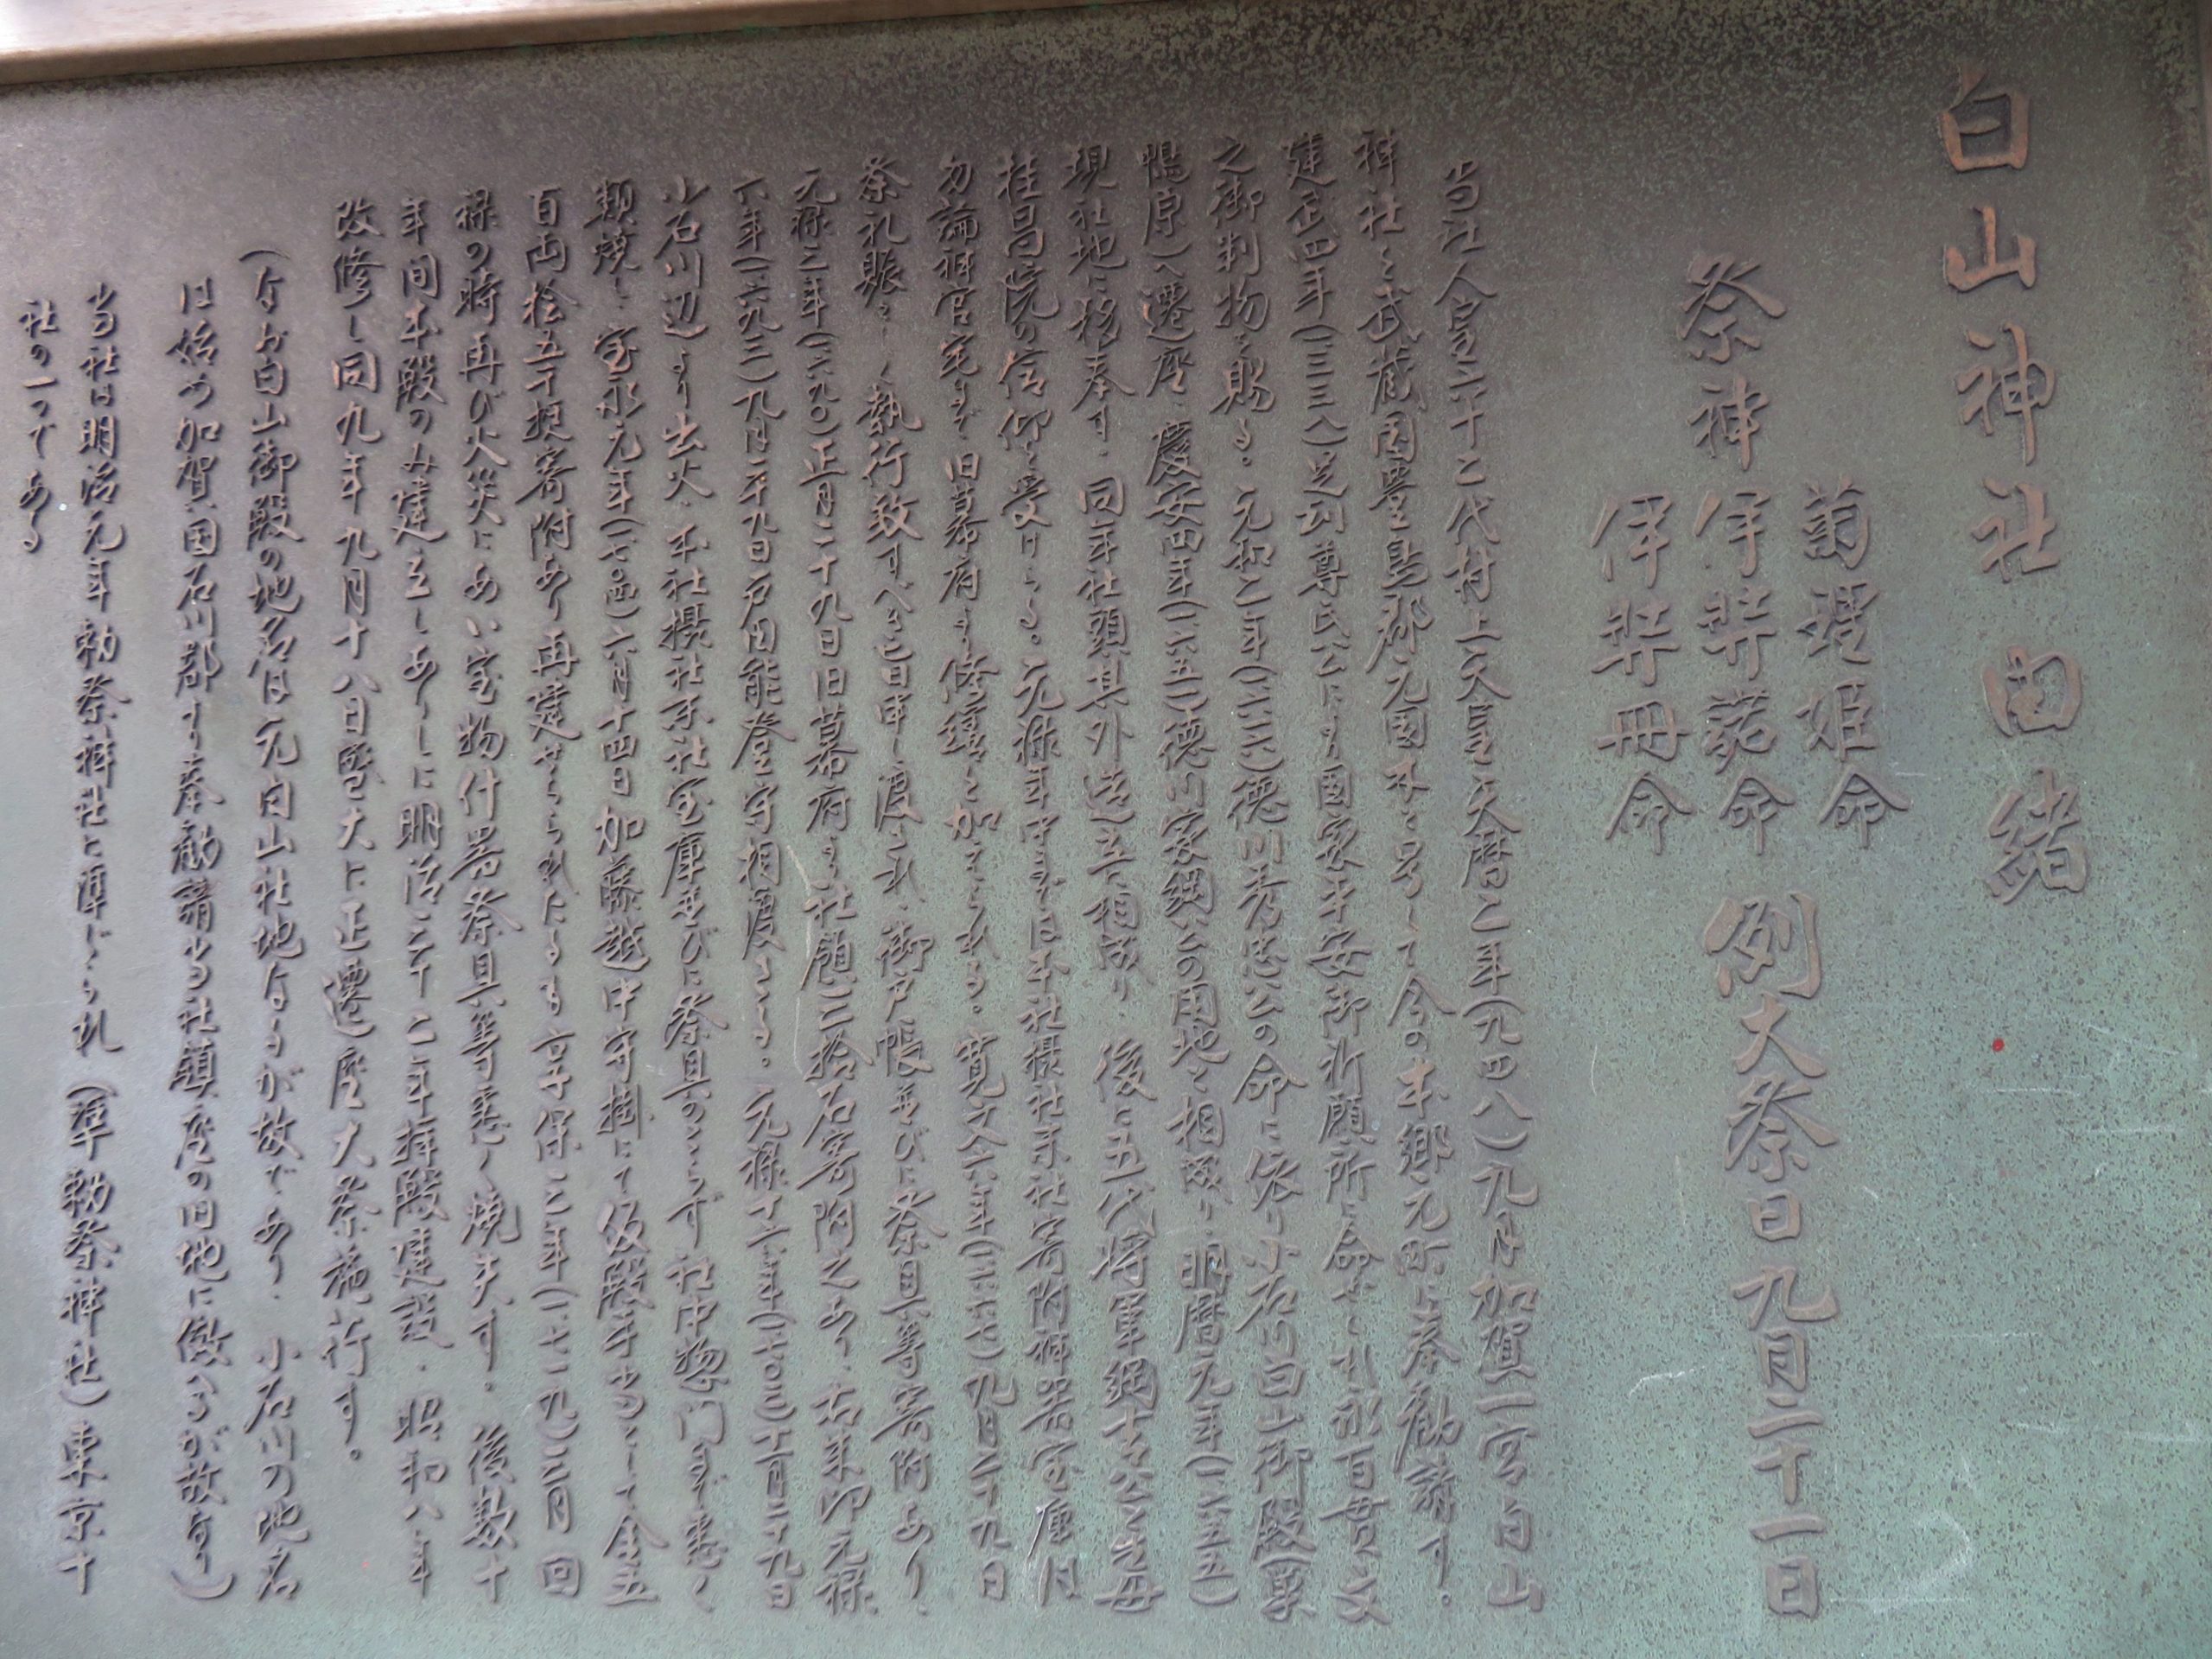 白山神社由緒
祭神
菊理姫命
伊弉諾命
伊弉冊命
例大祭日九月二十一日
当社人皇六十二代村上天皇天暦二年(九四八)九月加賀一宮白山
神社を武蔵国豊島郡元国木と号して今の本郷元町に奉勧請す。
建武四年(一三三八)足利尊氏公により国家平安御祈願所に命ぜられ永百貫文
之御判物を賜る。元和二年(一六一六)徳川秀忠公の命に依り小石川白山御殿(巣
鴨原)へ遷座、慶安四年(一六五一)徳川家綱公の用地と相成り、明暦元年(一六五五)
現社地に移奉す。同年社頭其外造立相成り、後に五代将軍綱吉公と生母
桂昌院の信仰を受けらる。元禄年中までは本社摂社末社寄附神器宝庫は
勿論神官宅まで旧幕府より修繕を加えられる。寛文六年(一六六七)九月二十九日
祭礼賑々しく執行致すべき旨申し渡され、御戸帳並びに祭具等寄附あり、
元禄三年(一六九〇)正月二十九日旧幕府より社領三拾石寄附之あり、右朱印元禄
六年(一六九三)九月二十九日戸田能登守相渡さる。元禄十六年(一七〇三)十一月二十九日
小石川辺より出火、本社摂社末社宝庫並びに祭具のこらず社中惣門まで悉く
類焼し宝永元年(一七〇四)六月十四日加藤越中守掛にて仮殿手当として金五
百両桧五千挺寄附あり再建せられたるも享保三年(一七一九)三月回
禄の時再び火災にあい宝物什器祭具等悉く焼失す。後数十
年間本殿のみ建立しありしに明治三十二年拝殿建設、昭和八年
改修し同九年九月十八日盛大に正遷座大祭施行す。
(なお白山御殿の地名は元白山社地なるが故であり、小石川の地名
は始め加賀国石川郡より奉勧請当社鎮座の旧地に倣るが故なり)
当社は明治元年勅祭神社に準ぜられ(準勅祭神社)東京十
社の一つである